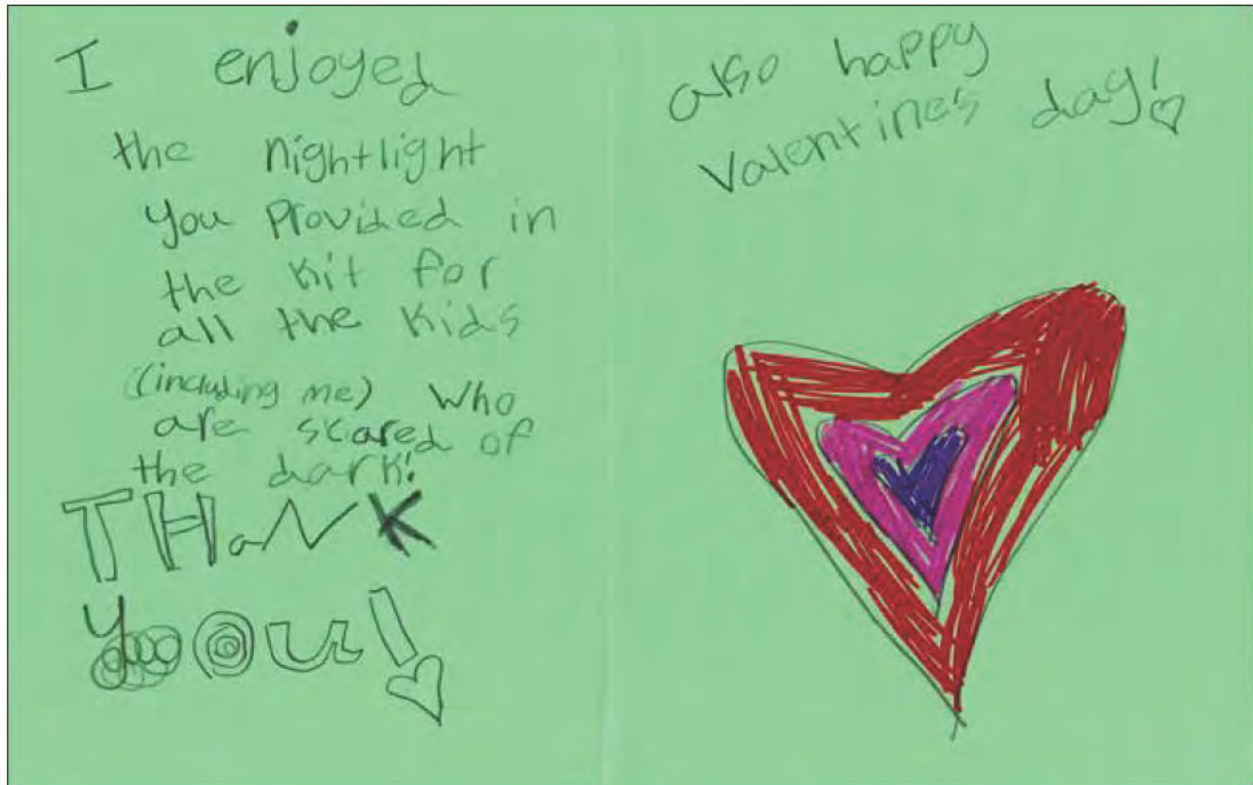 I enjoyed
the nightlight
you provided in
the kit for
all the kids
(including me) who
are scared of
the dark!
THaNK
You!
also happy
Valentines day!